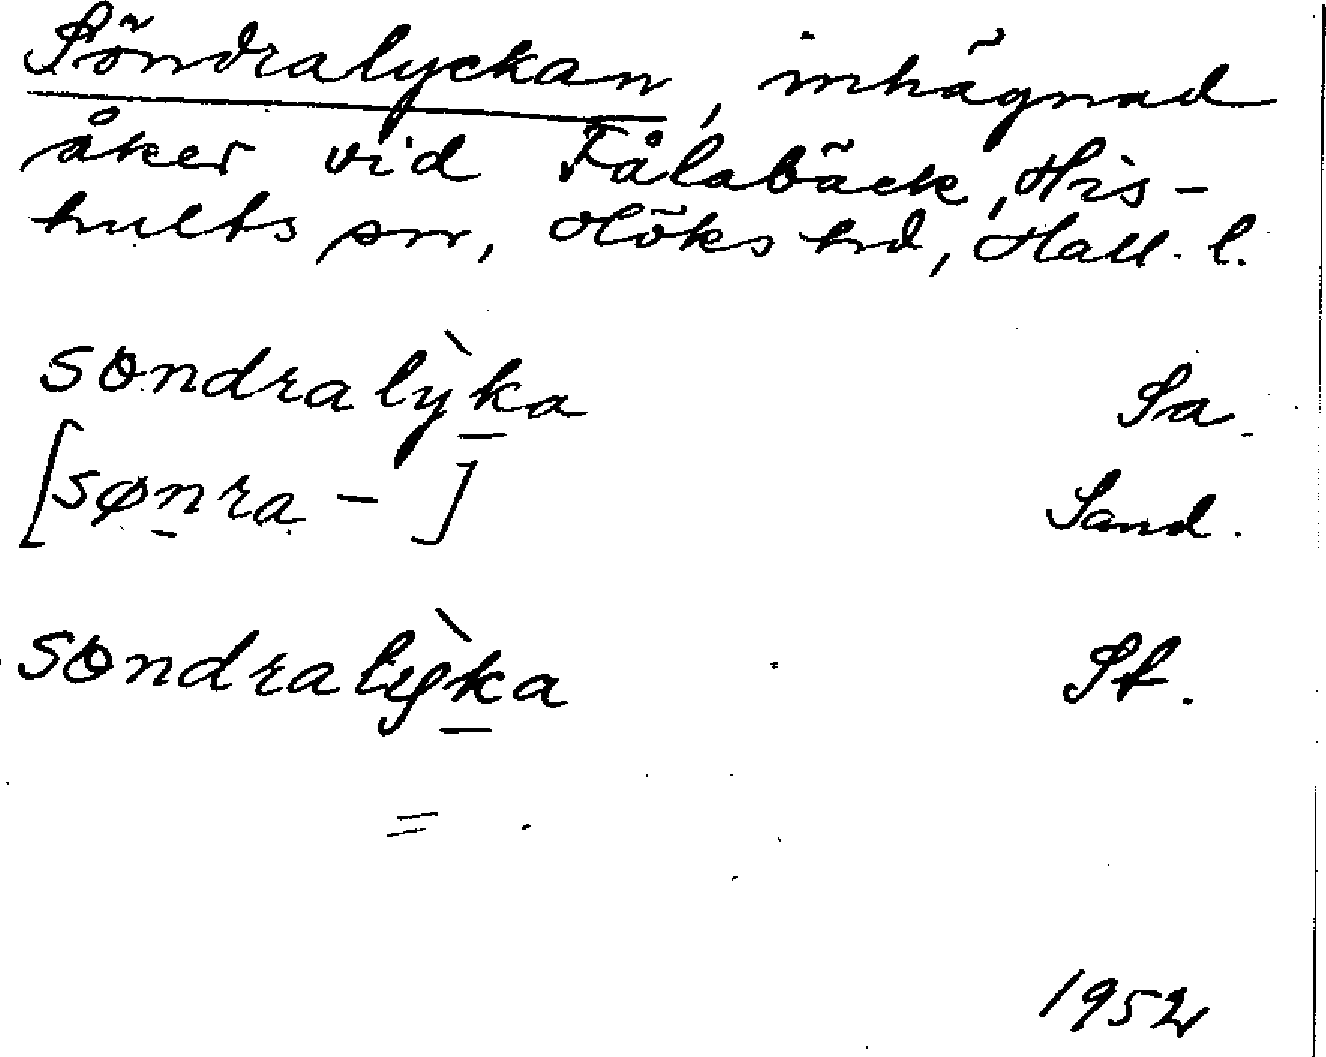 Söndralyckan, inhägnad
åker vid Fålabäck, His-
hults sn, Höks hd, Hall. l.
søndralỳka Sa.
[sønra-] Sand.
søndralỳka St.
=
1952